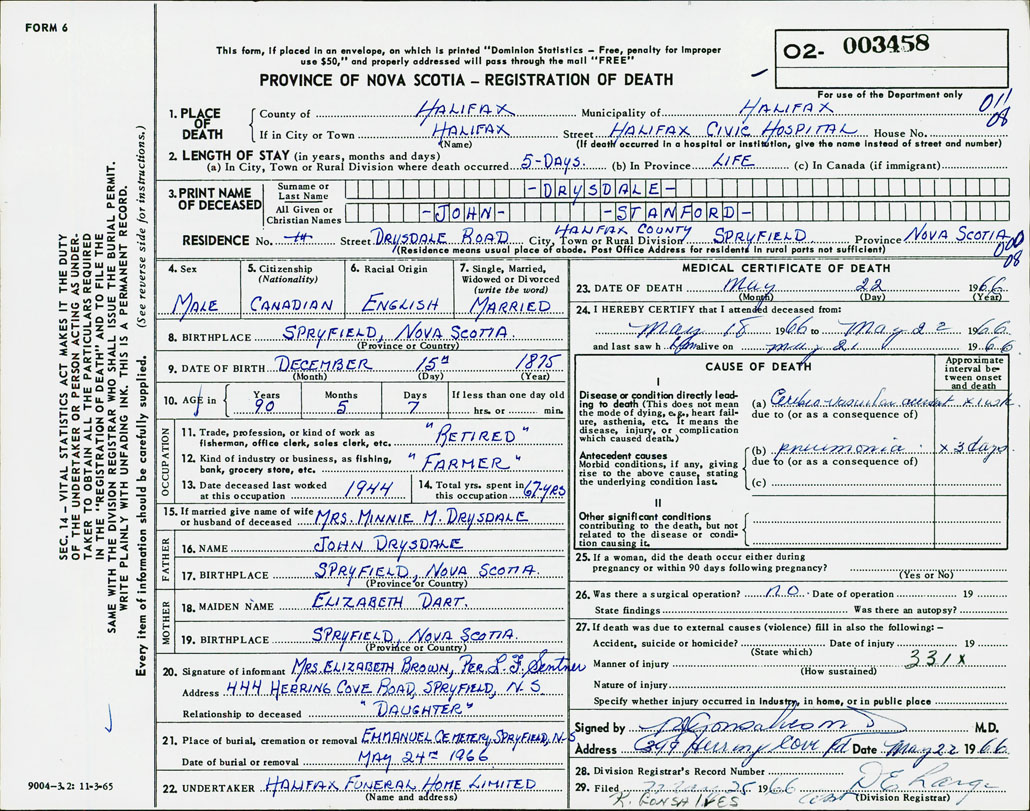 FORM 6
This form, if placed in an envelope, on which is printed "Dominion Statistics – Free, penalty for improper
use $50," and properly addressed will pass through the mail "FREE"
PROVINCE OF NOVA SCOTIA – REGISTRATION OF DEATH
02- 003458
For use of the Department only
011
08
SEC. 14 – VITAL STATISTICS ACT MAKES IT THE DUTY
OF THE UNDERTAKER OR PERSON ACTING AS UNDER-
TAKER TO OBTAIN ALL THE PARTICULARS REQUIRED
IN THE "REGISTRATION OF DEATH" AND TO FILE THE
SAME WITH THE DIVISION REGISTRAR WHO SHALL ISSUE THE BURIAL PERMIT.
WRITE PLAINLY WITH UNFADING INK. THIS IS A PERMANENT RECORD.
Every item of information should be carefully supplied. (See reverse side for instructions.)
1. PLACE OF DEATH
County of HALIFAX Municipality of HALIFAX
If in City or Town HALIFAX Street HALIFAX CIVIC HOSPITAL House No.
(Name) (If death occurred in a hospital or institution, give the name instead of street and number)
2. LENGTH OF STAY (in years, months and days)
(a) In City, Town or Rural Division where death occurred 5-DAYS. (b) In Province LIFE (c) In Canada (if immigrant)
3. PRINT NAME OF DECEASED
Surname or Last Name -DRYSDALE-
All Given or Christian Names -JOHN- -STANFORD-
RESIDENCE No. 14 Street DRYSDALE ROAD City, Town or Rural Division HALIFAX COUNTY SPRYFIELD Province NOVA SCOTIA
(Residence means usual place of abode. Post Office Address for residents in rural parts not sufficient)
000
08
4. Sex MALE
5. Citizenship (Nationality) CANADIAN
6. Racial Origin ENGLISH
7. Single, Married, Widowed or Divorced (write the word) MARRIED
8. BIRTHPLACE SPRYFIELD, NOVA SCOTIA.
(Province or Country)
9. DATE OF BIRTH DECEMBER 15th 1875
(Month) (Day) (Year)
10. AGE in Years 90 Months 5 Days 7 If less than one day old hrs. or min.
OCCUPATION
11. Trade, profession, or kind of work as fisherman, office clerk, sales clerk, etc. "RETIRED"
12. Kind of industry or business, as fishing, bank, grocery store, etc. "FARMER"
13. Date deceased last worked at this occupation 1944
14. Total yrs. spent in this occupation 67-YRS
15. If married give name of wife or husband of deceased MRS. MINNIE M. DRYSDALE
FATHER
16. NAME JOHN DRYSDALE
17. BIRTHPLACE SPRYFIELD, NOVA SCOTIA.
(Province or Country)
MOTHER
18. MAIDEN NAME ELIZABETH DART.
19. BIRTHPLACE SPRYFIELD, NOVA SCOTIA.
(Province or Country)
20. Signature of informant MRS. ELIZABETH BROWN, PER. L. F. Sentner
Address 444 HERRING COVE ROAD, SPRYFIELD, N.S
Relationship to deceased "DAUGHTER"
21. Place of burial, cremation or removal EMMANUEL CEMETERY, SPRYFIELD, N-S
Date of burial or removal MAY 24TH 1966
22. UNDERTAKER HALIFAX FUNERAL HOME LIMITED
(Name and address)
9004-3.2: 11-3-65
MEDICAL CERTIFICATE OF DEATH
23. DATE OF DEATH May 22 1966
(Month) (Day) (Year)
24. I HEREBY CERTIFY that I attended deceased from:
May 18 1966 to May 22 1966
and last saw him alive on may 21 1966
CAUSE OF DEATH
Approximate interval between onset and death
I
Disease or condition directly leading to death (This does not mean the mode of dying, e.g., heart failure, asthenia, etc. It means the disease, injury, or complication which caused death.)
(a) Cerebro-vascular accident x 1 wk
due to (or as a consequence of)
Antecedent causes
Morbid conditions, if any, giving rise to the above cause, stating the underlying condition last.
(b) pneumonia x 3 days
due to (or as a consequence of)
(c)
II
Other significant conditions contributing to the death, but not related to the disease or condition causing it.
25. If a woman, did the death occur either during
pregnancy or within 90 days following pregnancy?
(Yes or No)
26. Was there a surgical operation? NO. Date of operation 19
State findings Was there an autopsy?
27. If death was due to external causes (violence) fill in also the following: –
Accident, suicide or homicide? Date of injury 19
(State which)
Manner of injury 331X
(How sustained)
Nature of injury
Specify whether injury occurred in Industry, in home, or in public place
Signed by M.D.
Address Herring Cove Rd Date May 22 1966
28. Division Registrar's Record Number
29. Filed 1966
(Division Registrar)
R. GONSALVES